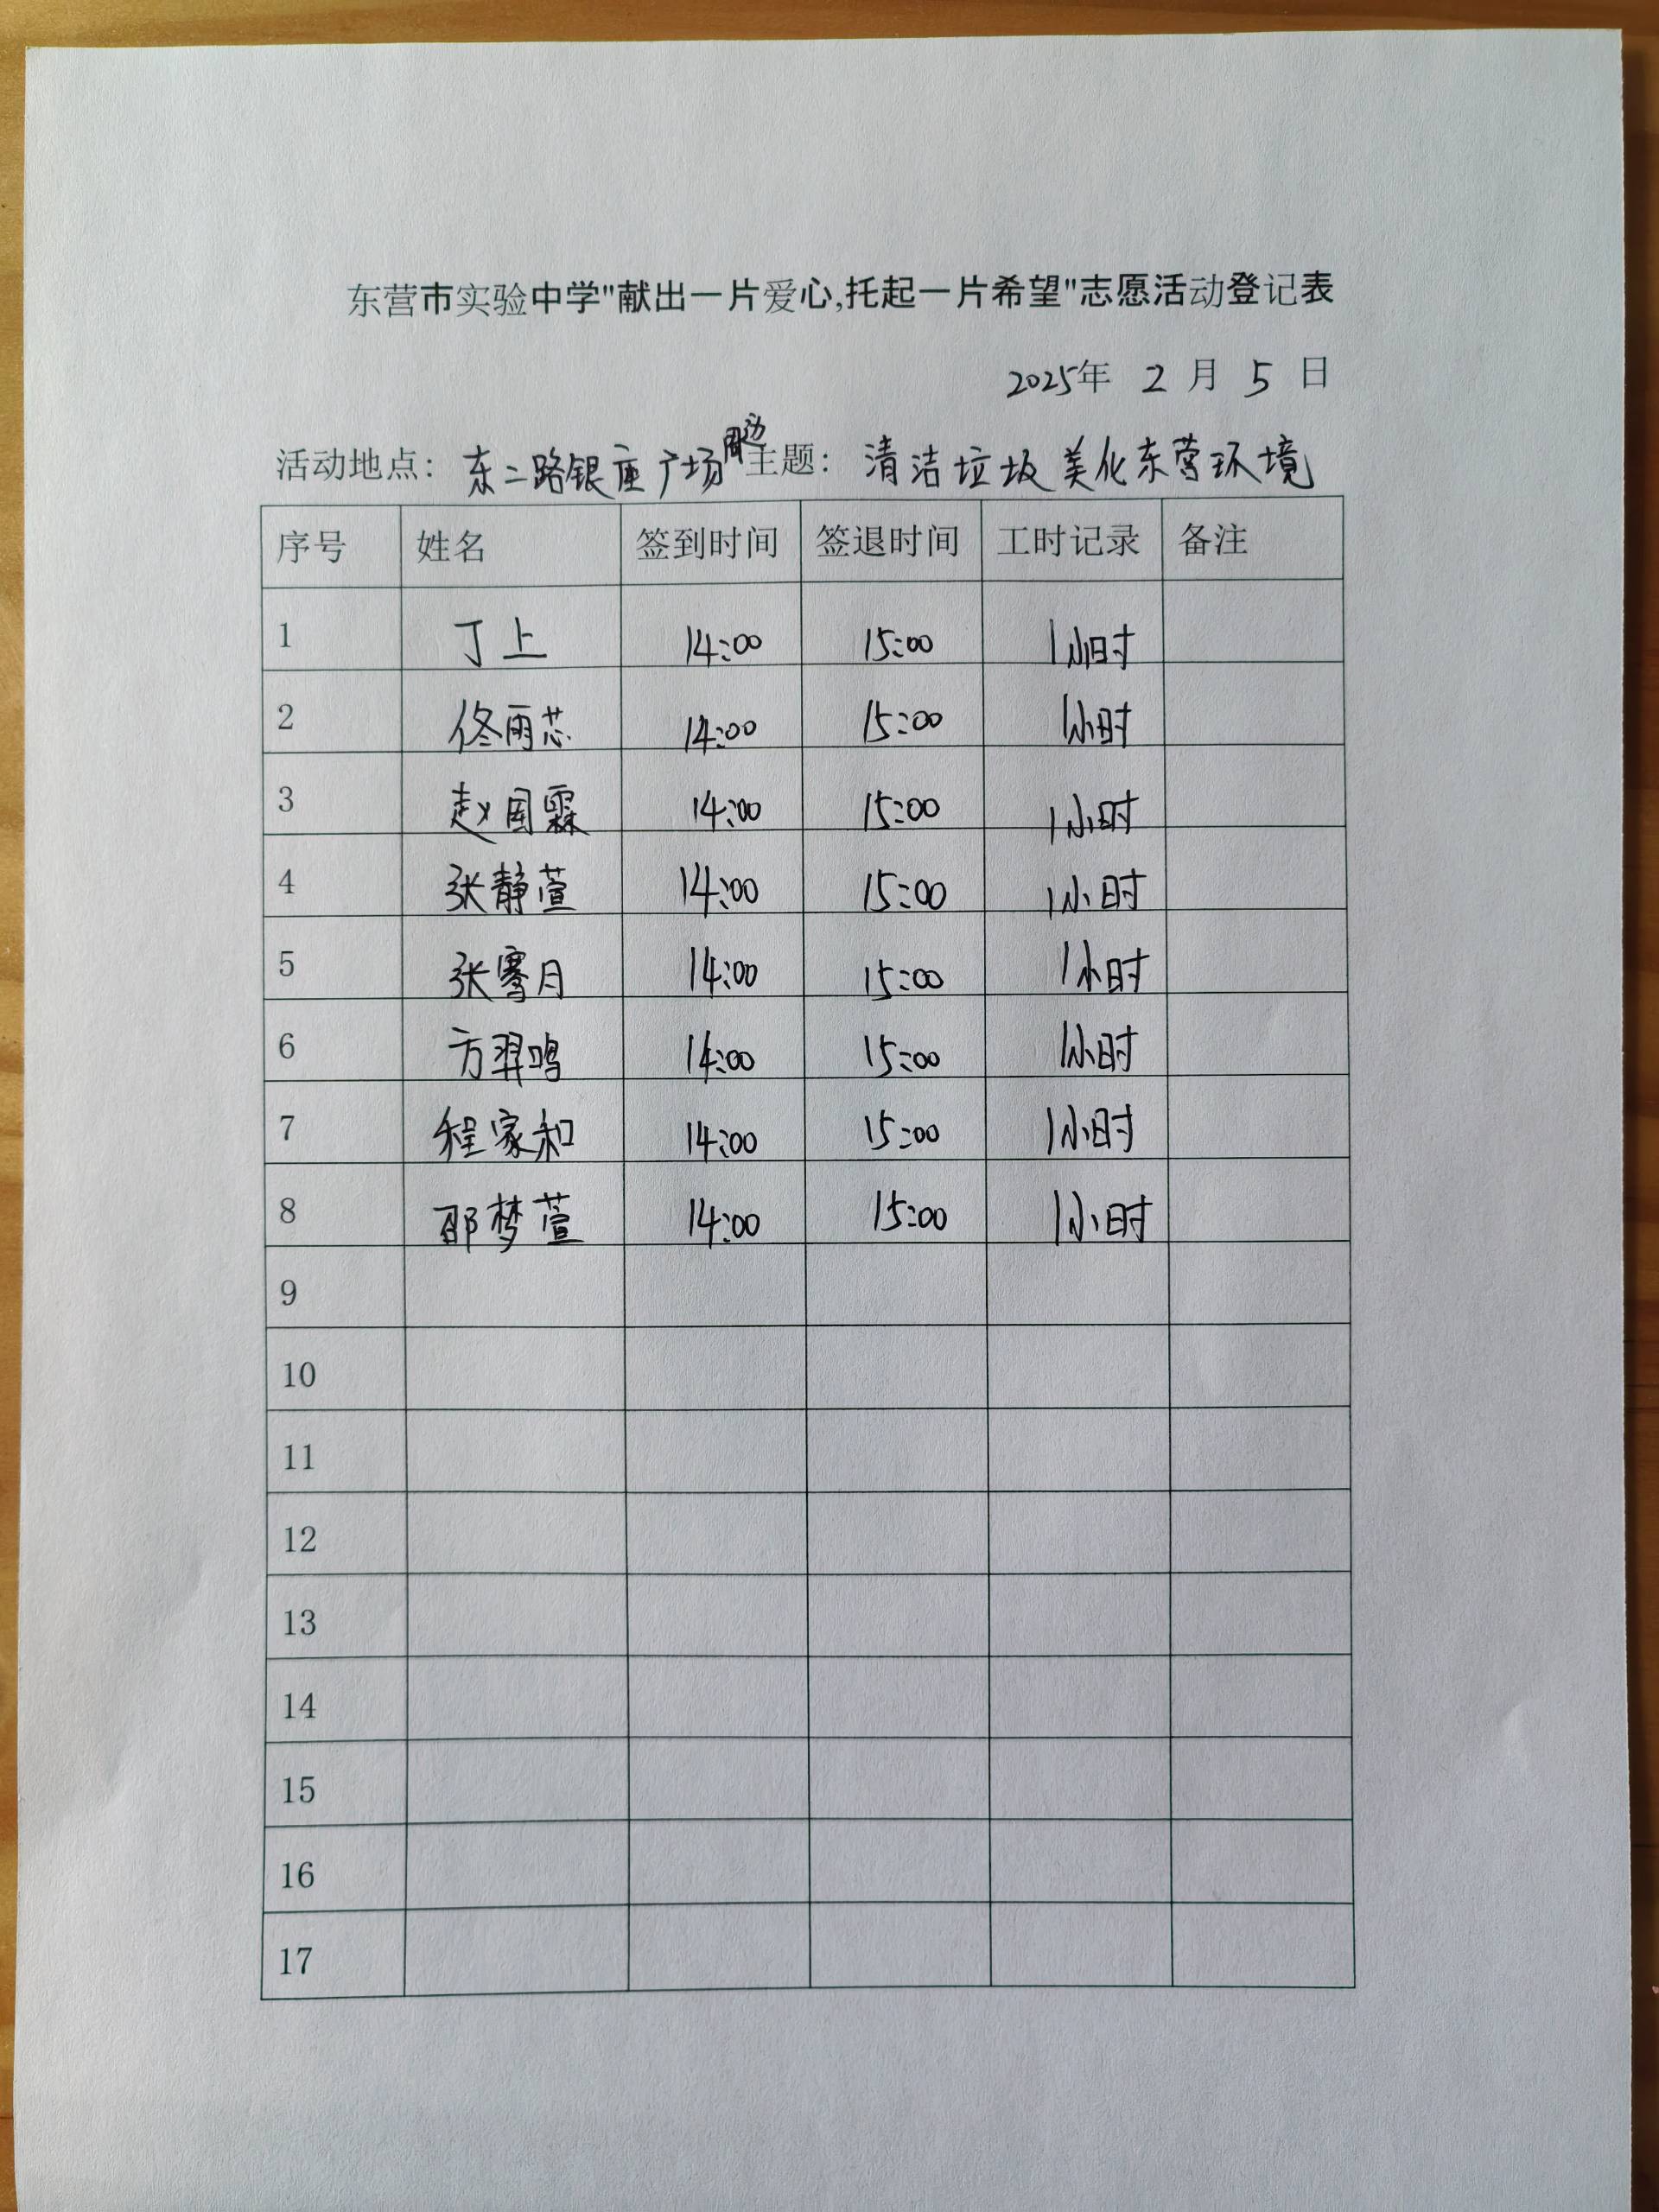 东营市实验中学"献出一片爱心,托起一片希望"志愿活动登记表
2025年 2 月 5 日
活动地点: 东二路银座广场周边 主题: 清洁垃圾 美化东营环境
序号 姓名 签到时间 签退时间 工时记录 备注
1 丁上 14:00 15:00 1小时
2 佟雨芯 14:00 15:00 1小时
3 赵国霖 14:00 15:00 1小时
4 张静萱 14:00 15:00 1小时
5 张骞月 14:00 15:00 1小时
6 方羿鸣 14:00 15:00 1小时
7 程家和 14:00 15:00 1小时
8 邵梦萱 14:00 15:00 1小时
9
10
11
12
13
14
15
16
17